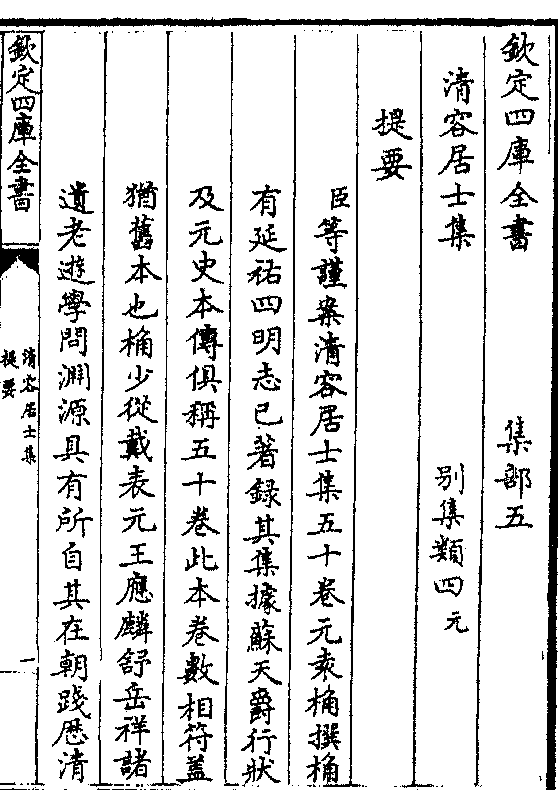 欽定四庫全書 集部五
清容居士集 别集類四元
提要
臣等謹案清容居士集五十卷元袁桷撰桷
有延祐四明志已著録其集據蘇天爵行狀
及元史本傳俱稱五十卷此本卷數相符蓋
猶舊本也桷少從戴表元王應麟舒岳祥諸
遺老遊學問淵源具有所自其在朝踐歴清
欽定四庫全書
清容居士集
提要
一